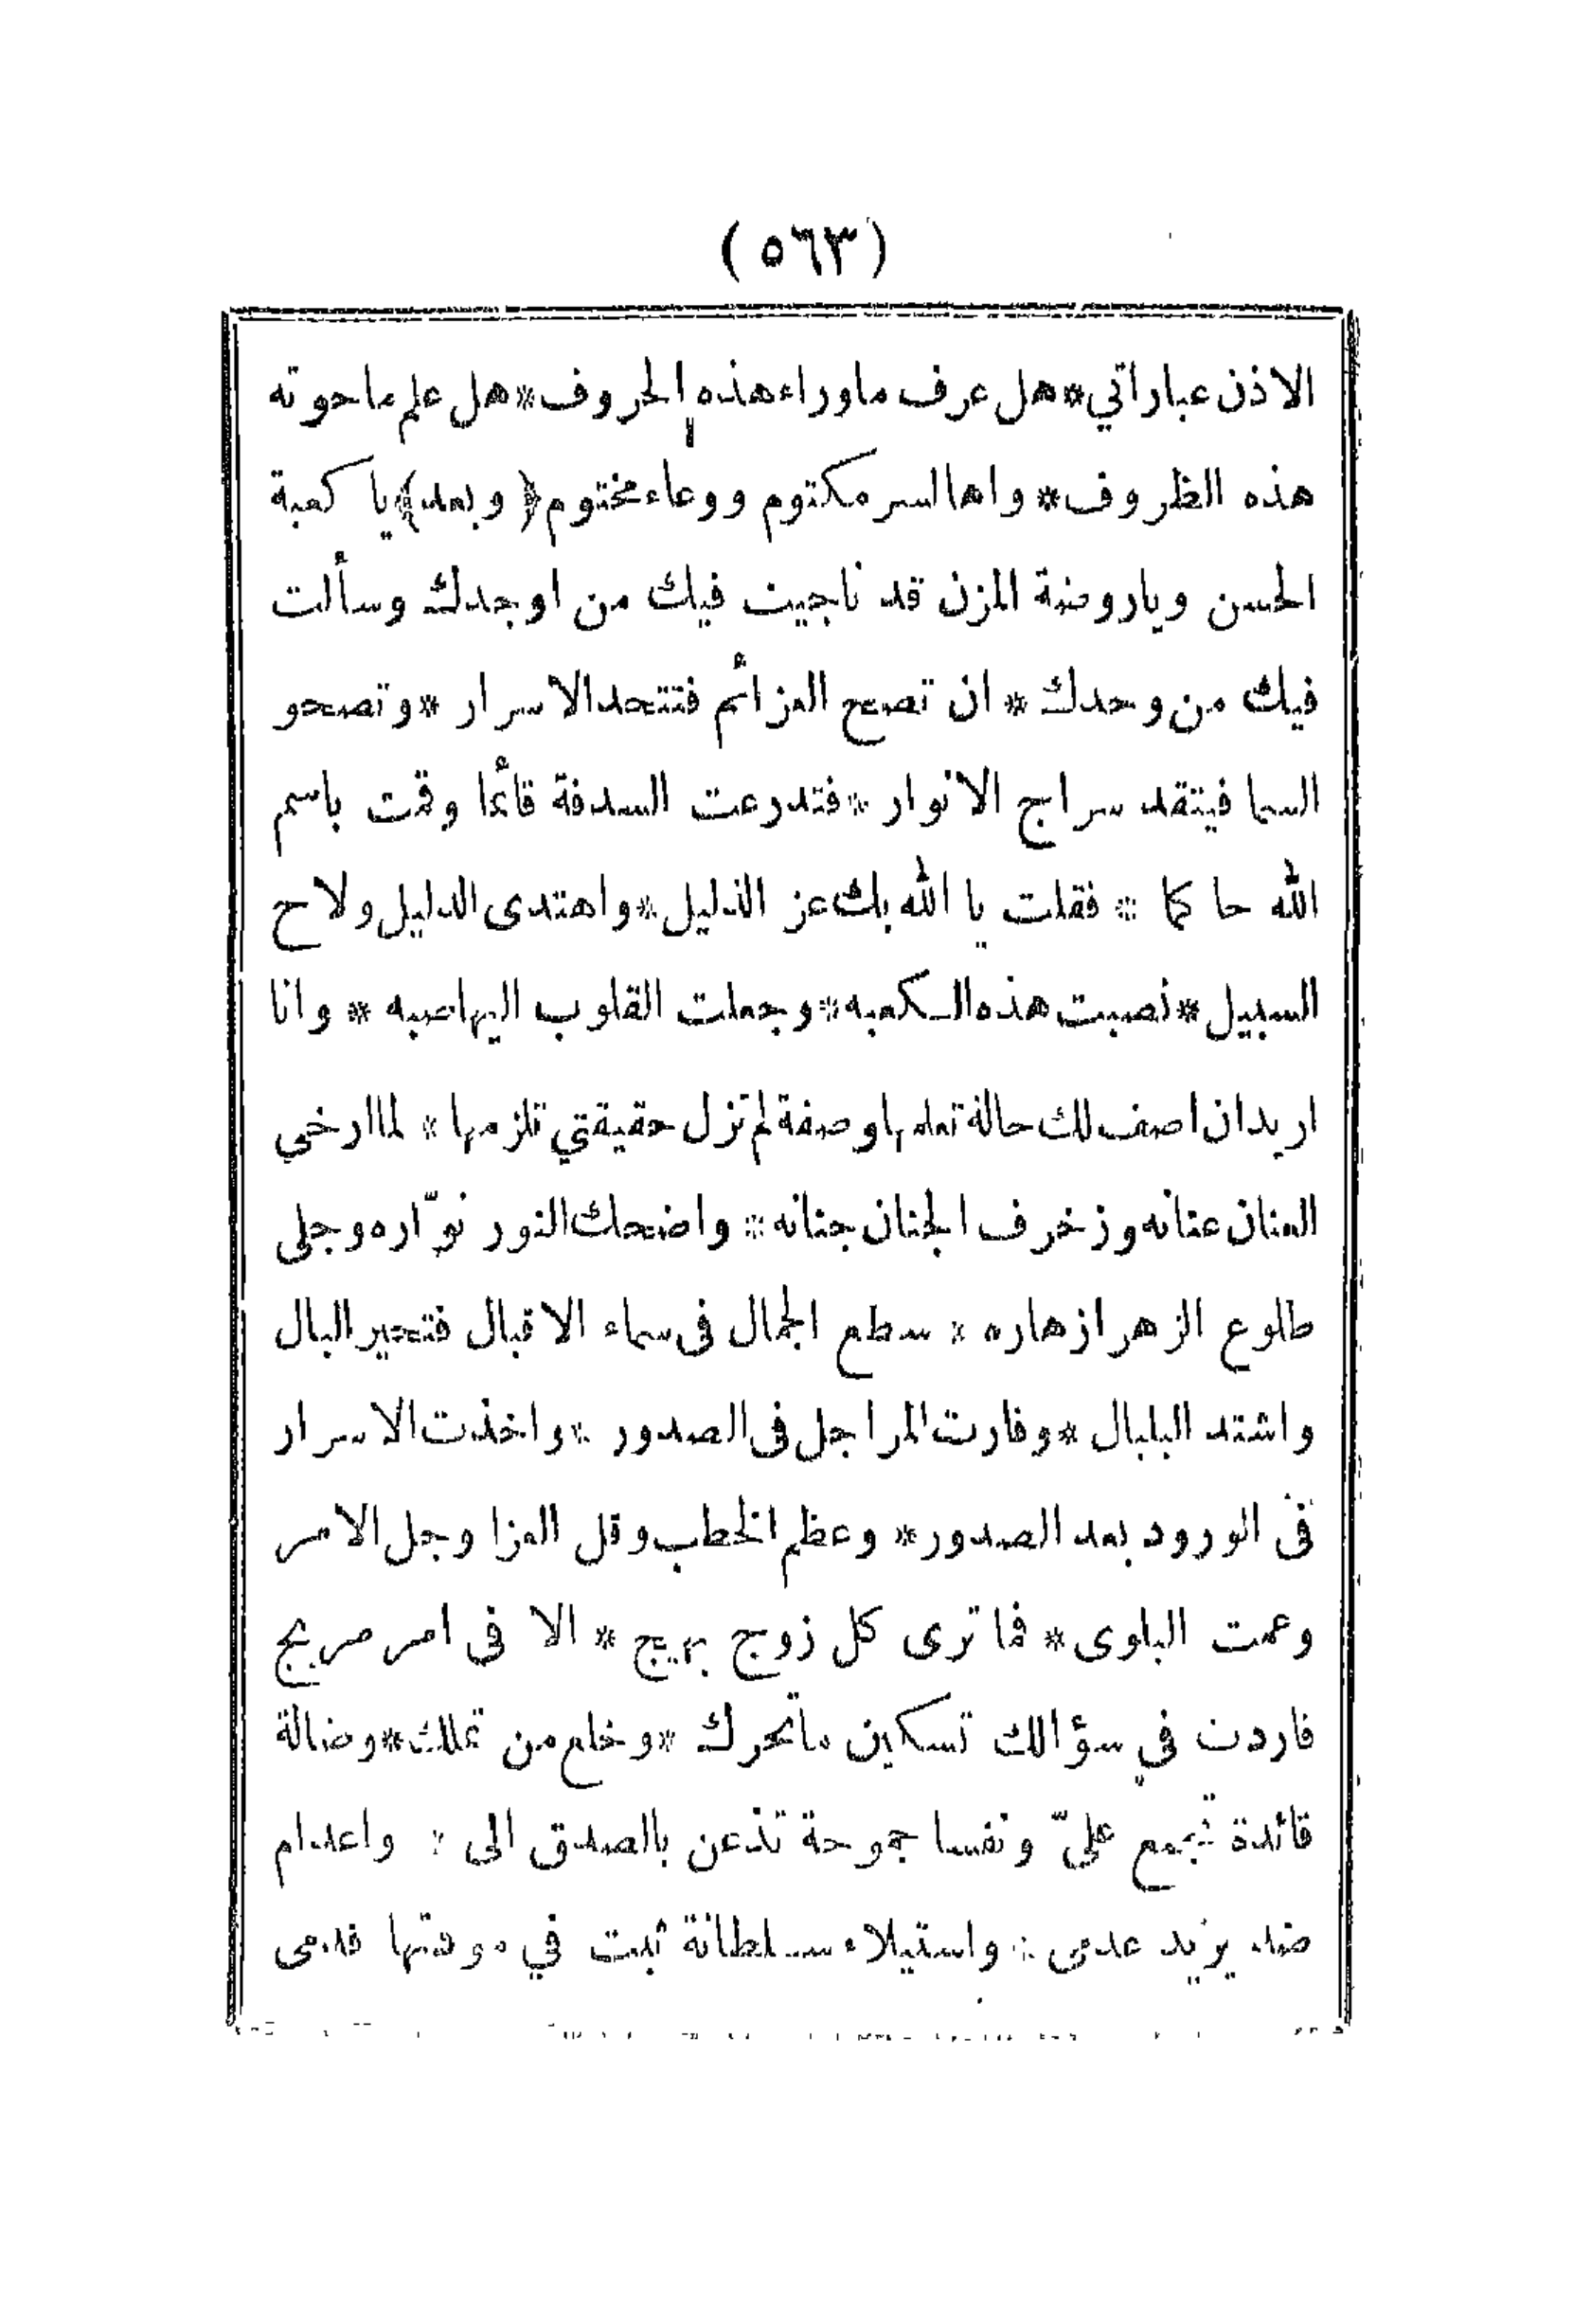 (٥٦٣)
الاذن عباراتي*هل عرف ماوراءهذه الحروف*هل علم ماحوته
هذه الظروف* واهالسر مكتوم ووعاء مختوم﴿وبعد﴾يا كعبة
الحسن وياروضة المزن قد ناجيت فيك من اوجدك وسألت
فيك من وحدك * ان تصح العزائم فتتحد الاسرار *وتصحو
السما فيتقد سراج الانوار *فتدرعت السدفة قائما وقمت باسم
الله حاكما * فقلت يا الله بك عز الذليل*واهتدى الدليل ولاح
السبيل*نصبت هذه الكعبه*وجعلت القلوب اليهاصبه * وانا
اريدان اصف لك حالة تعلمهاوصفة لم تزل حقيقتي تلزمها* لما ارخى
العنان عنانه وزخرف الجنان جنانه* واضحك النور نوّاره وجلى
طلوع الزهر ازهاره * سطع الجمال فى سماء الاقبال فتحير البال
واشتد البلبال *وفارت المراجل فى الصدور *واخذت الاسرار
فى الورود بعد الصدور* وعظم الخطب وقل العزا وجل الامر
وعمت البلوى* فما ترى كل زوج بهيج * الا فى امر مريج
فاردت في سؤالك تسكين ماتحرك *وخلع من تملك*وضالة
قائدة تجمع علىّ ونفسا جموحة تذعن بالصدق الى * واعدام
ضد يريد عدمى * واستيلاء سلطانة ثبت في مودتها قدمى